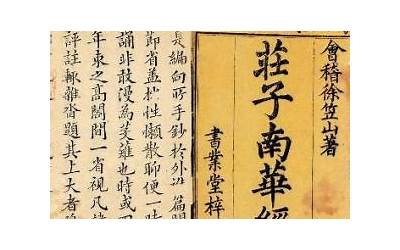 會稽徐笠山著
莊子南華經
書業堂梓
是編向所手鈔於外篇
節省蓋性懶散聊便一時
誦非敢漫為芟薙也時或
年束之高閣間一省視凡
評註輙雜沓題其上大者